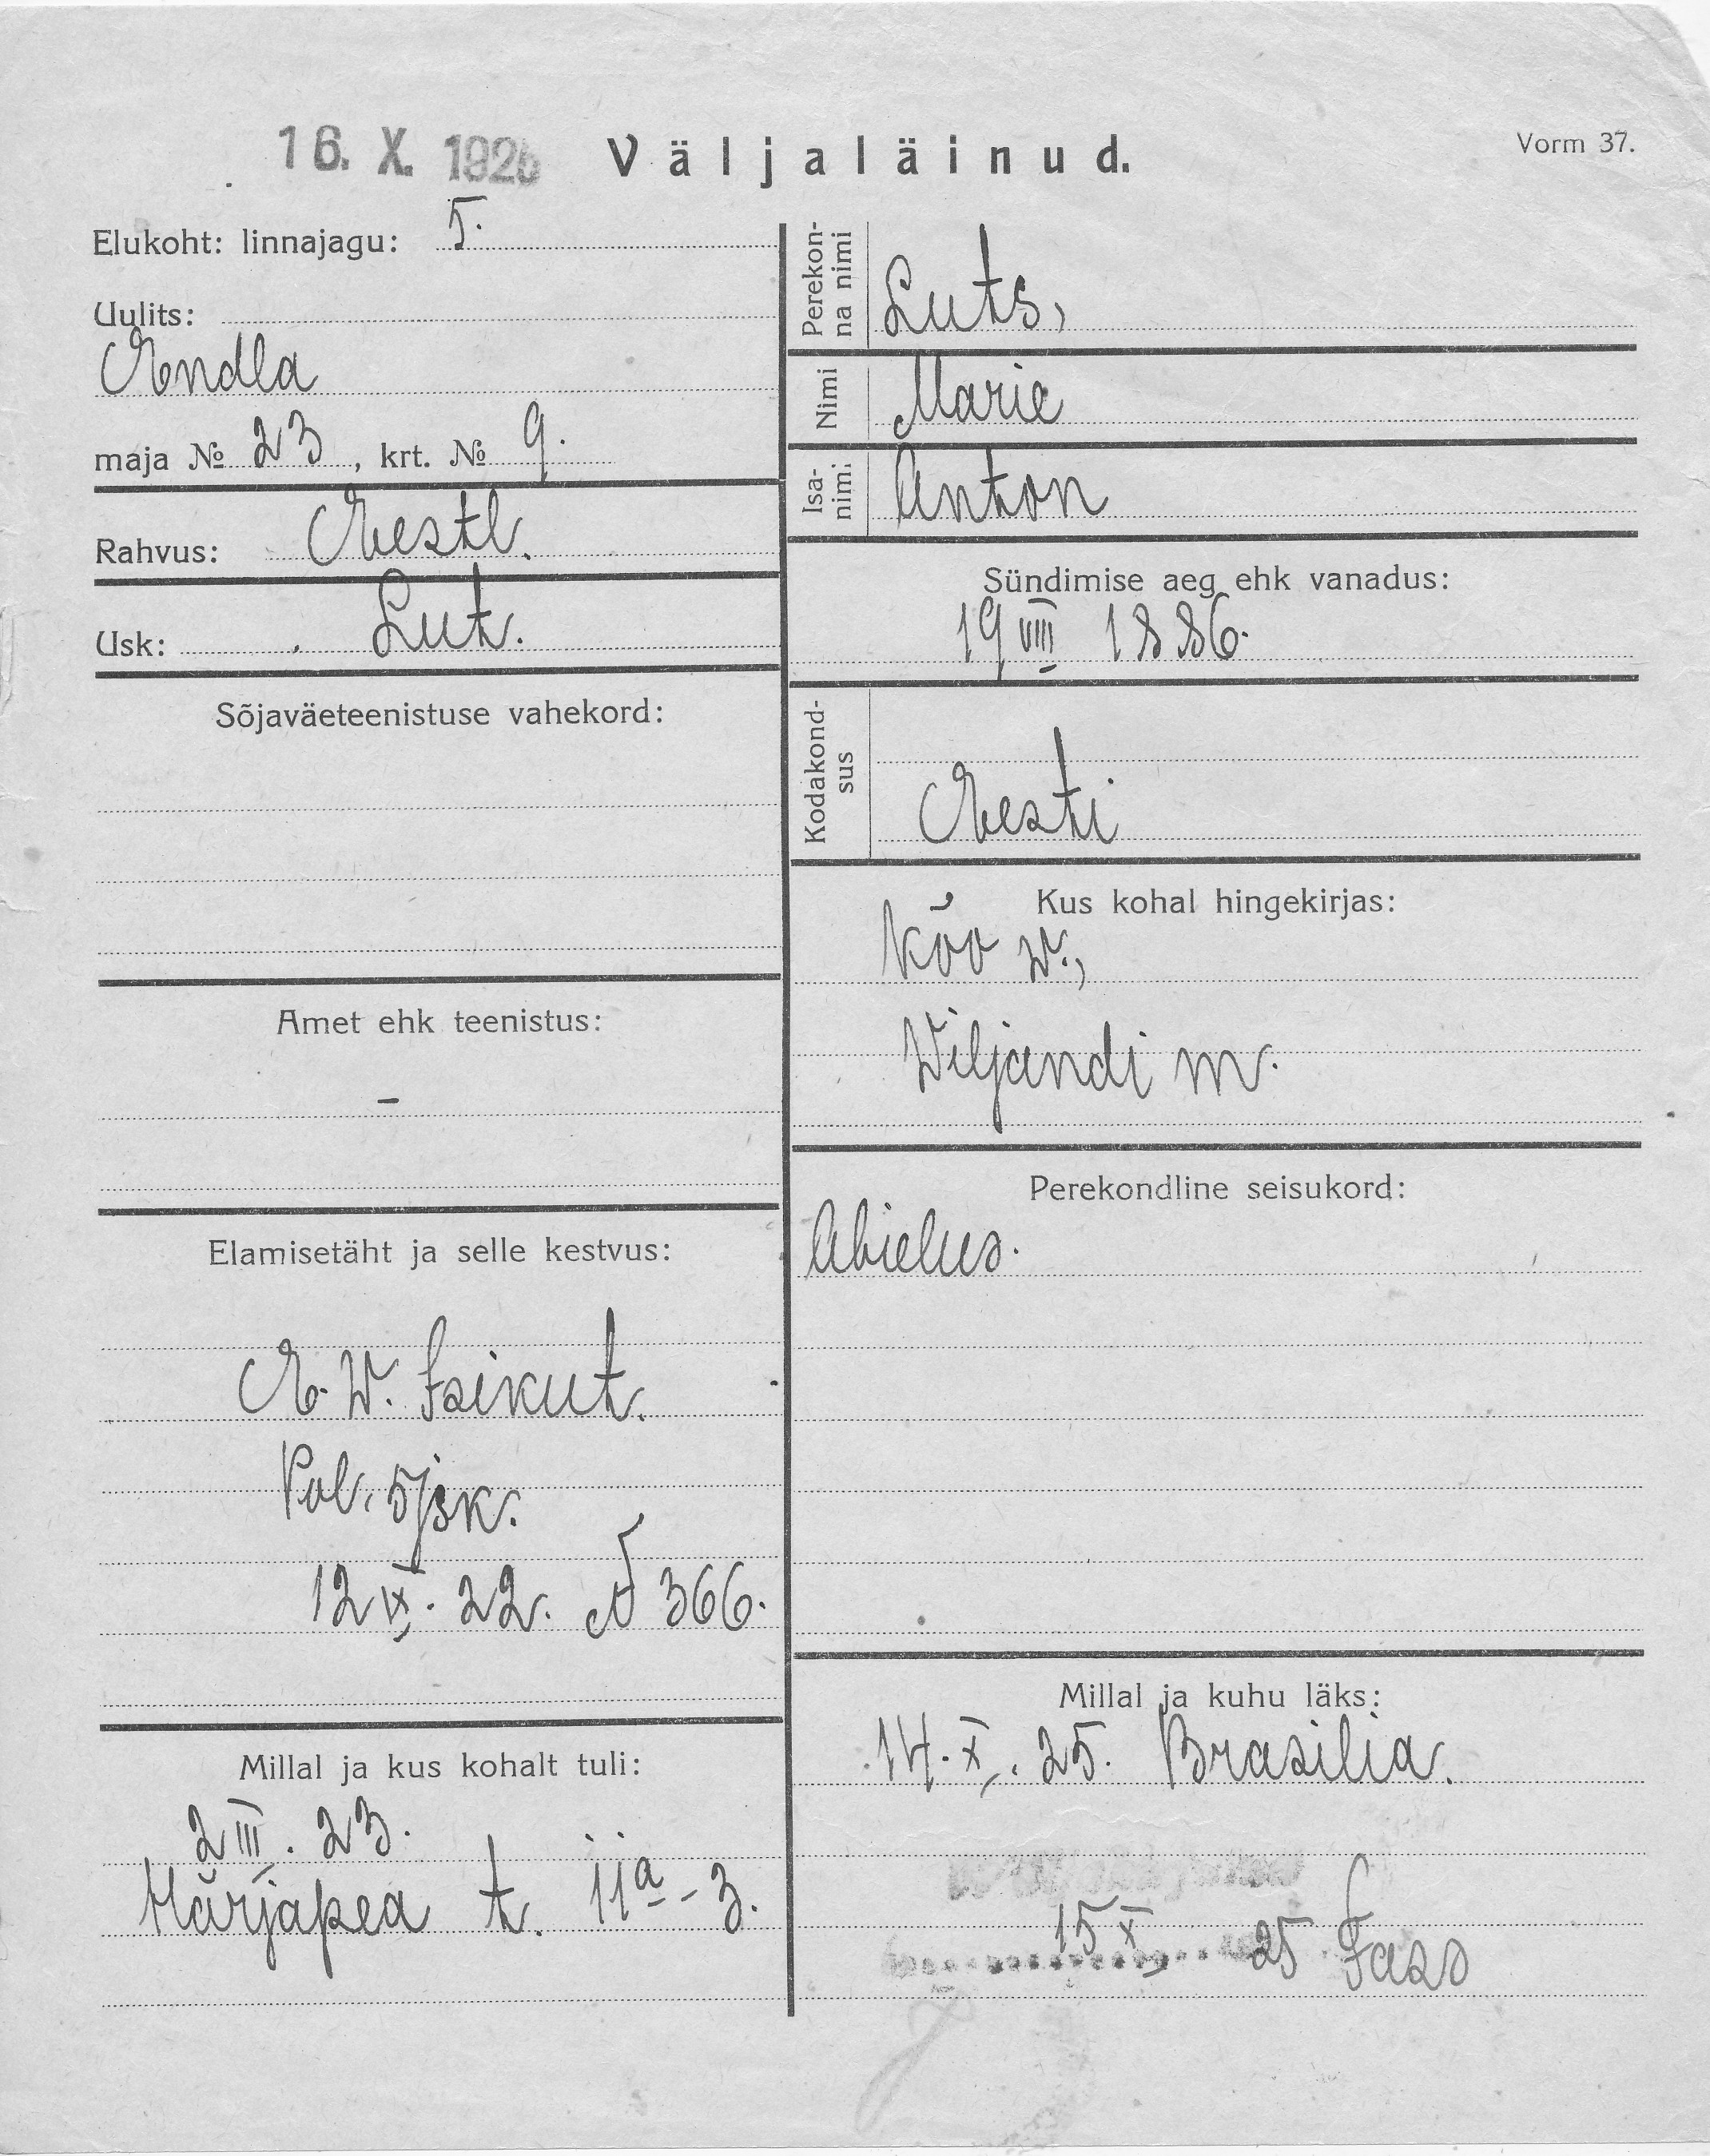 16. X. 1925
Väljaläinud.
Vorm 37.
Elukoht: linnajagu: 5.
Uulits:
Endla
maja № 23, krt. № 9.
Rahvus: Eestl.
Usk: Lut.
Sõjaväeteenistuse vahekord:
Amet ehk teenistus:
–
Elamisetäht ja selle kestvus:
E. W. Isikut.
Pol. 5/jsk.
12 IX. 22. № 366.
Millal ja kus kohalt tuli:
2 III. 23.
Härjapea t. 11a - 3.
Perekon-
na nimi
Luts,
Nimi
Marie
Isa-
nimi
Anton
Sündimise aeg ehk vanadus:
19 VIII 1886.
Kodakond-
sus
Eesti
Kus kohal hingekirjas:
Kõo w.,
Wiljandi m.
Perekondline seisukord:
Abielus.
Millal ja kuhu läks:
14. X. 25. Brasilia.
15 X 25